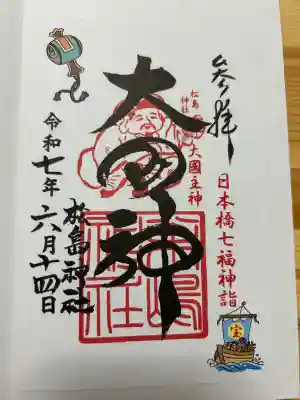 参拝
日本橋七福神詣
松島
神社
大國主神
大国神
松島神社
令和七年六月十四日
宝